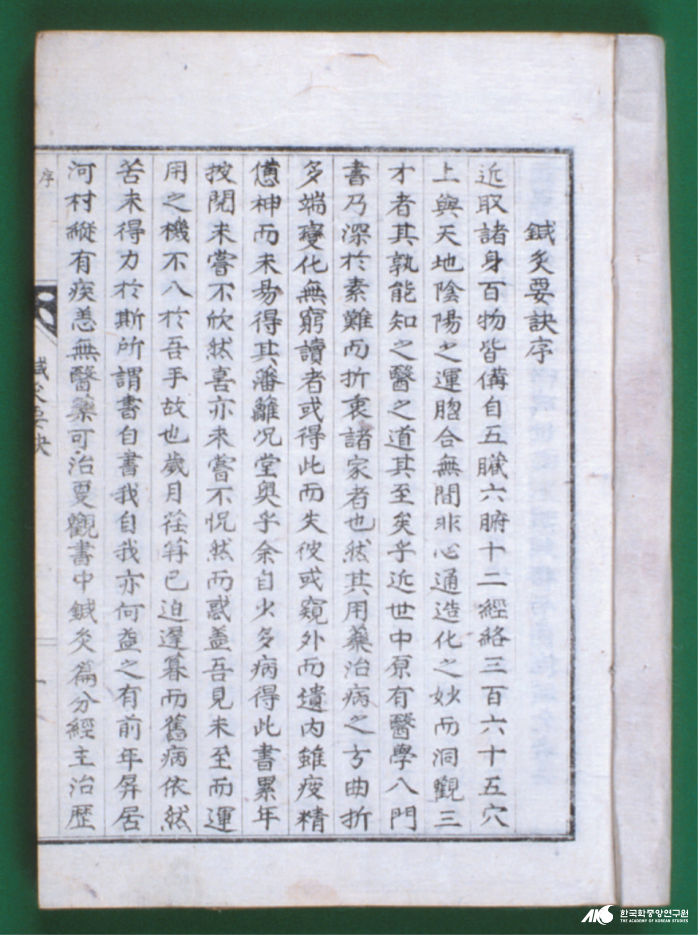 鍼灸要訣序
近取諸身百物皆備自五臟六腑十二經絡三百六十五穴
上與天地陰陽之運脗合無間非心通造化之妙而洞觀三
才者其孰能知之醫之道其至矣乎近世中原有醫學八門
書乃深於素難而折衷諸家者也然其用藥治病之方曲折
多端變化無窮讀者或得此而失彼或窺外而遺內雖疲精
憊神而未易得其藩籬况堂奧乎余自少多病得此書累年
披閱未嘗不欣然喜亦未嘗不怳然而惑盖吾見未至而運
用之機不入於吾手故也歲月荏苒已迫遲暮而舊病依然
苦未得力於斯所謂書自書我自我亦何益之有前年屏居
河村縱有疾恙無醫藥可治夏觀書中鍼灸篇分經主治歷
序
鍼灸要訣
一
한국학중앙연구원
THE ACADEMY OF KOREAN STUDIES